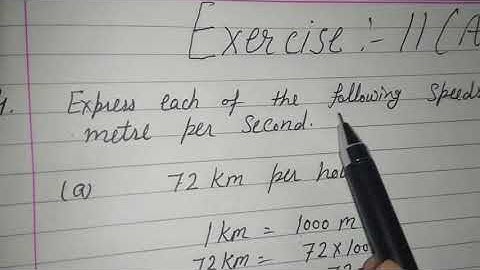 Exercise :- 11 (A
1. Express each of the following speeds
metre per second.
(a) 72 km per hou
1 km = 1000 m
72 km = 72 × 100